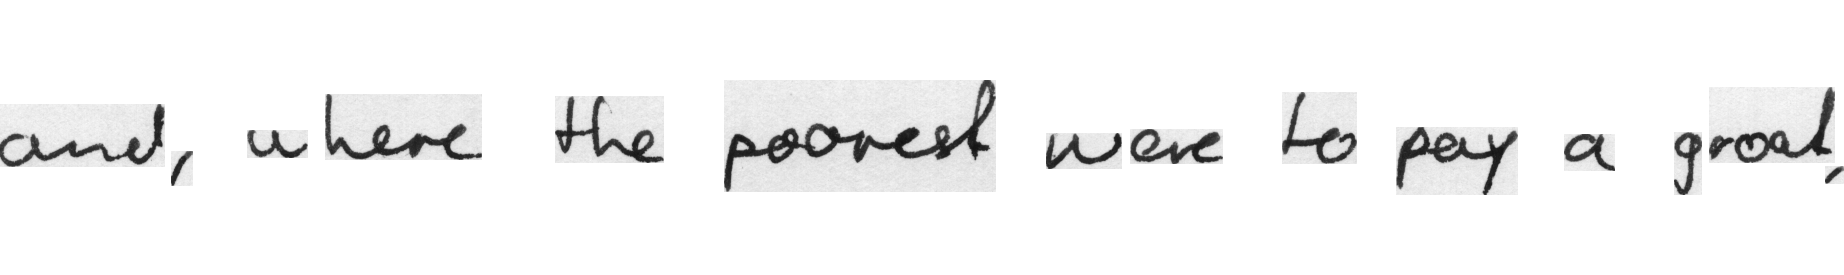 and, where the poorest were to pay a groat,